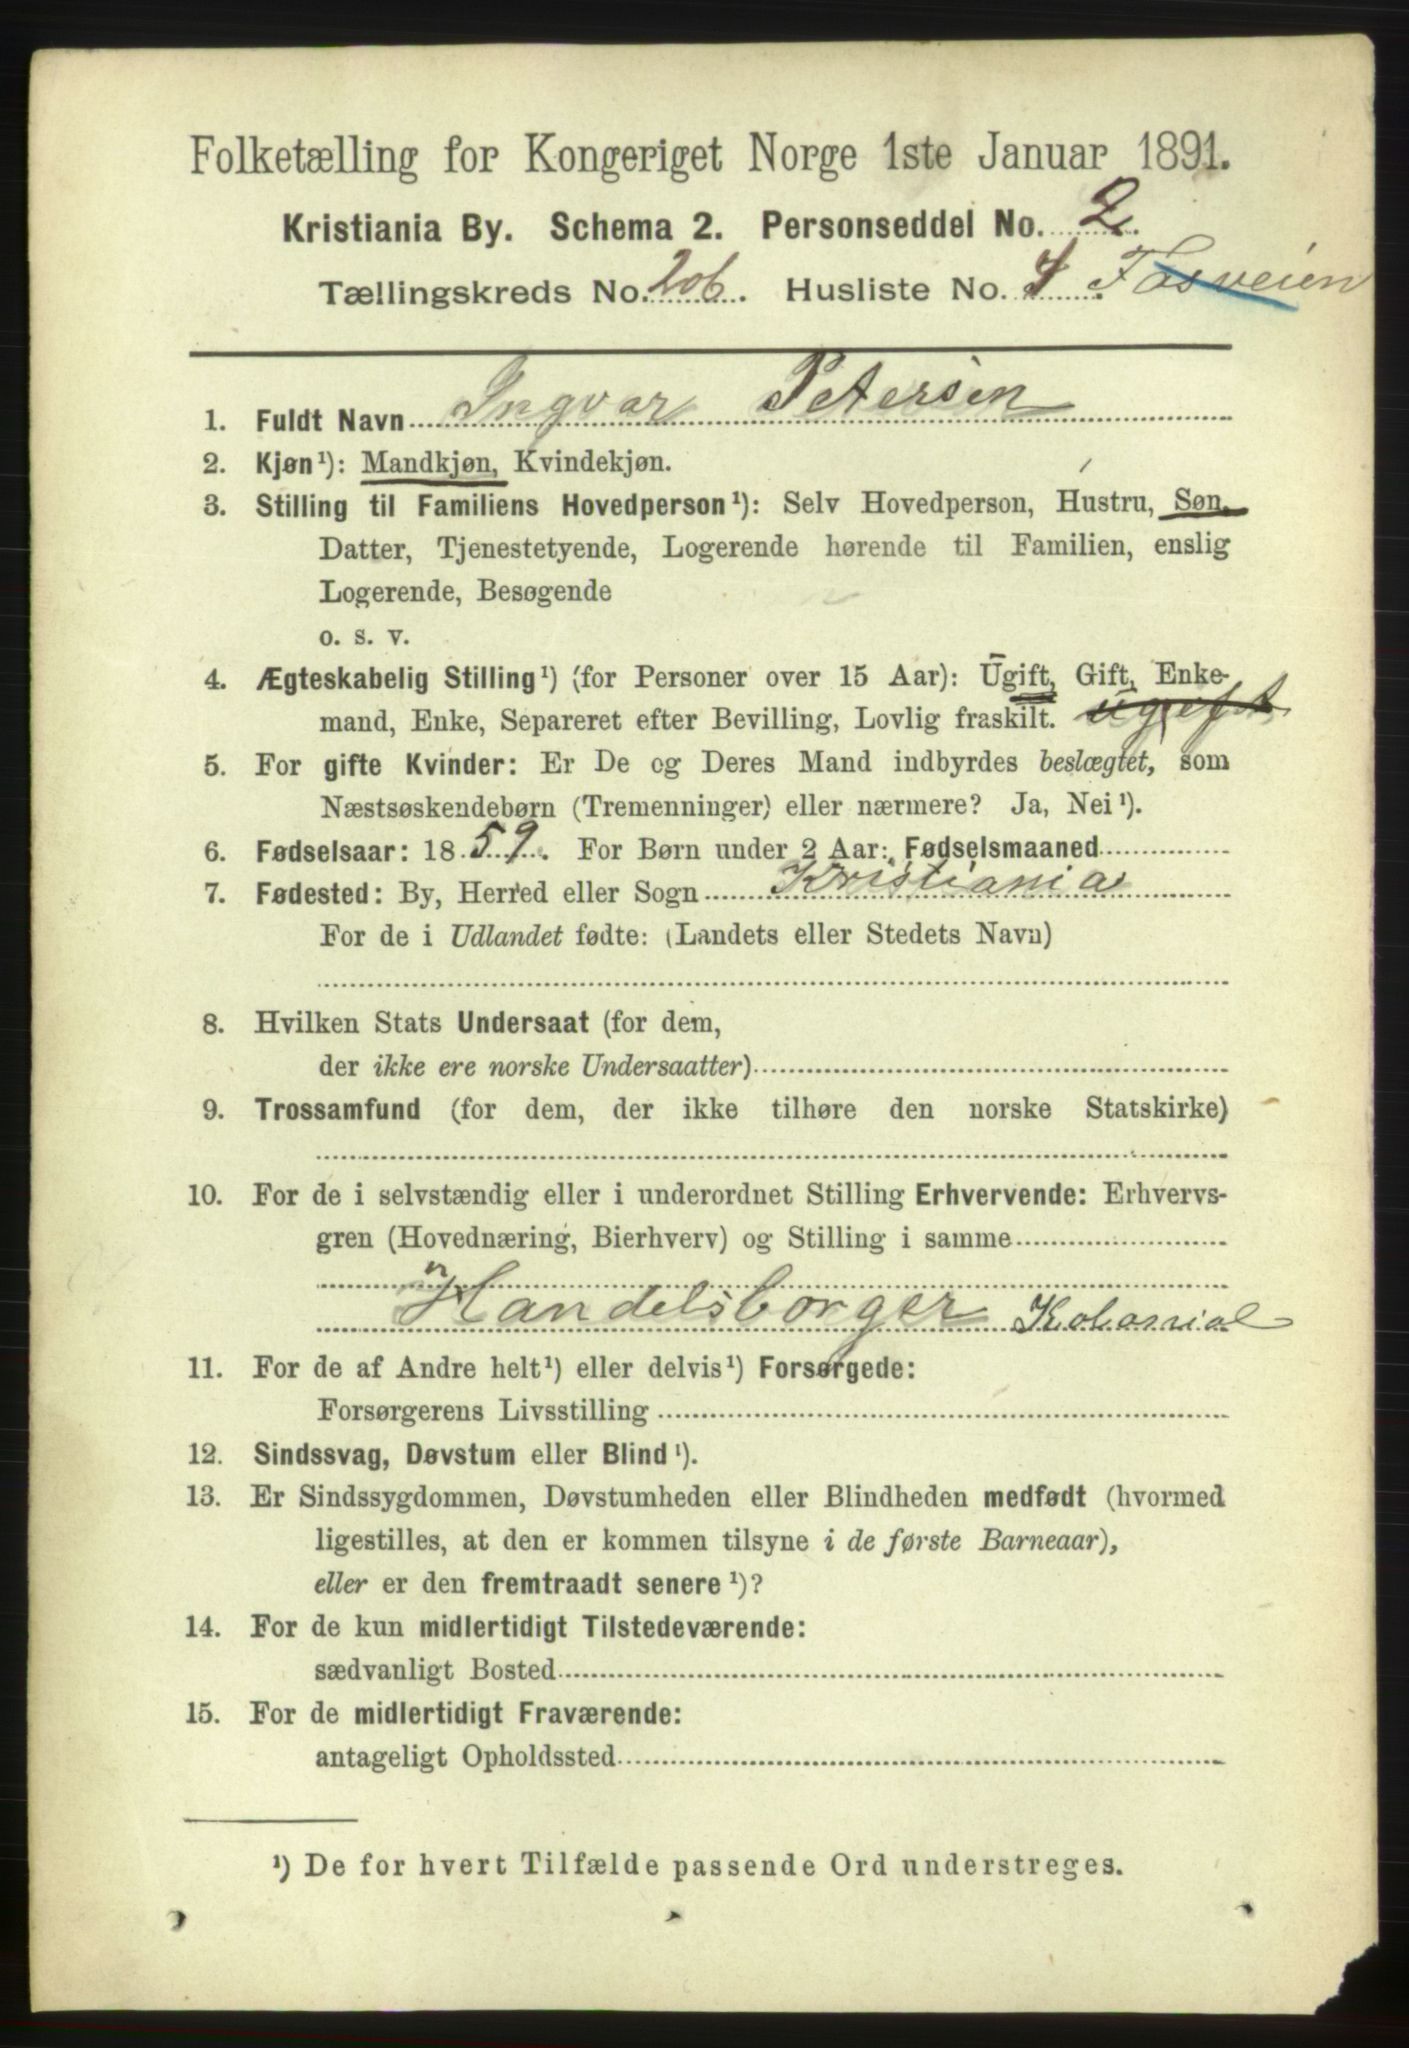 Folketælling for Kongeriget Norge 1ste Januar 1891.
Kristiania By. Schema 2. Personseddel No. 2.
Tællingskreds No. 206. Husliste No. 4 Fosveien
1. Fuldt Navn Ingvar Petersen
2. Kjøn¹): Mandkjøn, Kvindekjøn.
3. Stilling til Familiens Hovedperson¹): Selv Hovedperson, Hustru, Søn,
Datter, Tjenestetyende, Logerende hørende til Familien, enslig
Logerende, Besøgende
o. s. v.
4. Ægteskabelig Stilling¹) (for Personer over 15 Aar): Ugift, Gift, Enke-
mand, Enke, Separeret efter Bevilling, Lovlig fraskilt. ugift
5. For gifte Kvinder: Er De og Deres Mand indbyrdes beslægtet, som
Næstsøskendebørn (Tremenninger) eller nærmere? Ja, Nei¹).
6. Fødselsaar: 1859. For Børn under 2 Aar: Fødselsmaaned
7. Fødested: By, Herred eller Sogn Kristiania
For de i Udlandet fødte: (Landets eller Stedets Navn)
8. Hvilken Stats Undersaat (for dem,
der ikke ere norske Undersaatter)
9. Trossamfund (for dem, der ikke tilhøre den norske Statskirke)
10. For de i selvstændig eller i underordnet Stilling Erhvervende: Erhvervs-
gren (Hovednæring, Bierhverv) og Stilling i samme
Handelsborger Kolonial
11. For de af Andre helt¹) eller delvis¹) Forsørgede:
Forsørgerens Livsstilling
12. Sindssvag, Døvstum eller Blind¹).
13. Er Sindssygdommen, Døvstumheden eller Blindheden medfødt (hvormed
ligestilles, at den er kommen tilsyne i de første Barneaar),
eller er den fremtraadt senere¹)?
14. For de kun midlertidigt Tilstedeværende:
sædvanligt Bosted
15. For de midlertidigt Fraværende:
antageligt Opholdssted
¹) De for hvert Tilfælde passende Ord understreges.